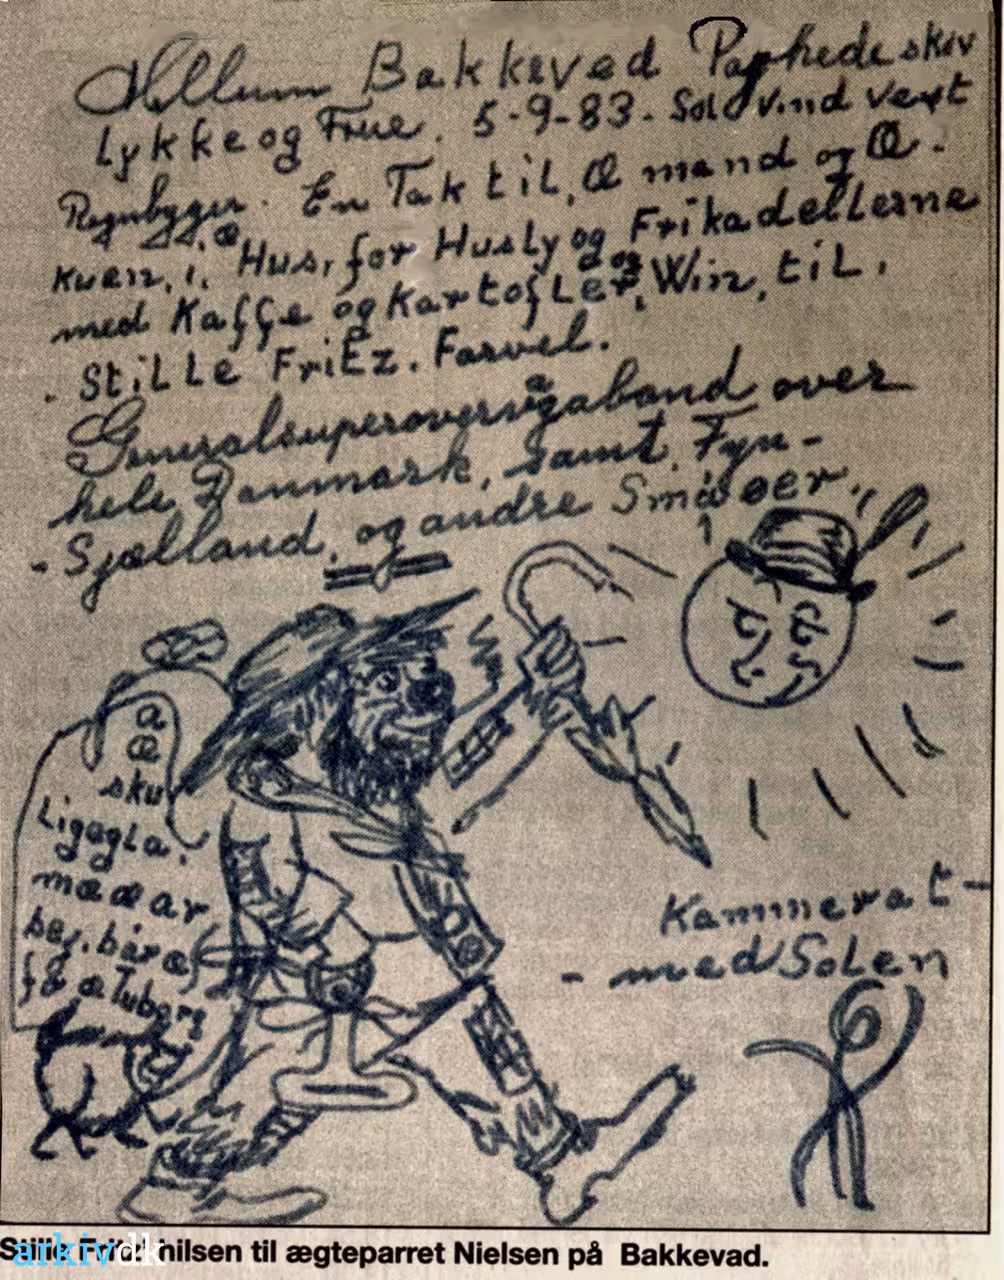 Hellum Bakkeved Paphedeskiv
Lykke og Frue. 5-9-83. Sol vind vext
Regnbyger. En Tak til, Æ mand og Æ.
Kuen, i, æ Hus, for Husly og Frikadellerne
med Kaffe og Kartofler, og Win, til,
. Stille Fritz. Farvel.
Generalsuperoversvagabond over
hele Danmark, samt, Fyn-
- Sjælland, og andre Småøer.
a
æ
sku
Ligagla.
mæ æ ar
bej. bare
få æ Tuborg
Kammerat -
- med Solen
Stille Fritz' hilsen til ægteparret Nielsen på Bakkevad.
arkiv.dk